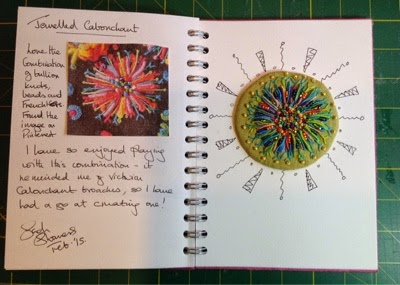 Jewelled Cabonchant
Love the
Combination
of bullion
knots,
beads and
French knots.
Found the
image on
Pinterest
I have so enjoyed playing
with this combination - it
reminded me of Victorian
Cabonchant broaches, so I have
had a go at creating one!
Feb '15.